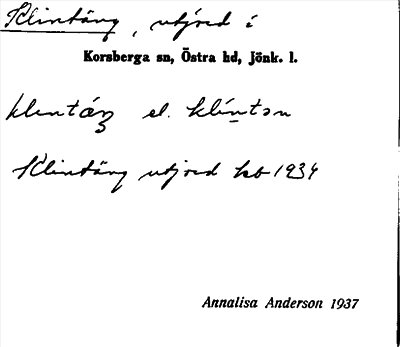 Klintäng, utjord i
Korsberga sn, Östra hd, Jönk. l.
klentáŋ el. klíntən
Klintäng utjord kb 1934
Annalisa Anderson 1937